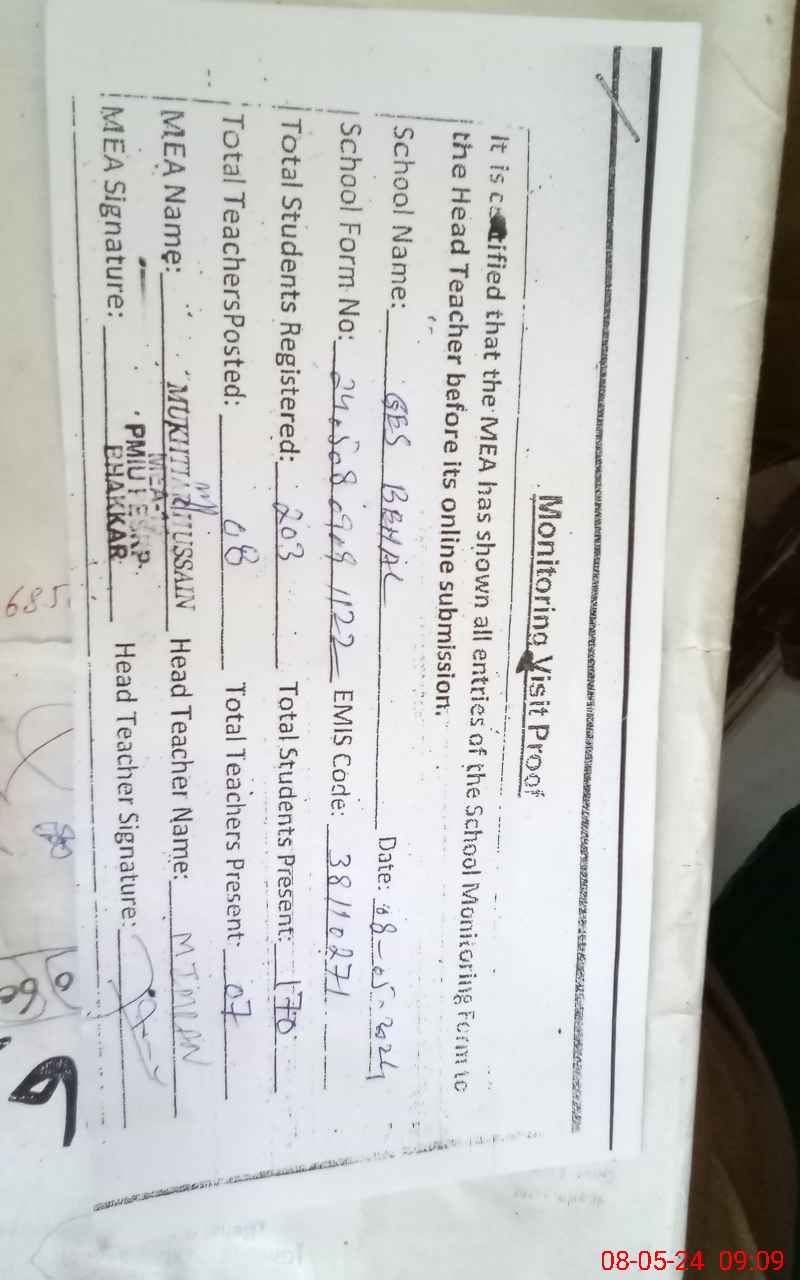 Monitoring Visit Proof
It is certified that the MEA has shown all entries of the School Monitoring Form to
the Head Teacher before its online submission.
School Name: GES BEHAL Date: 08-05-2024
School Form No: 1122 EMIS Code: 38110271
Total Students Registered: 203 Total Students Present: 170
Total TeachersPosted: 08 Total Teachers Present: 07
MEA Name: MUKHTIAR HUSSAIN Head Teacher Name: M IMRAN
MEA Signature: Head Teacher Signature:
MEA-
PMIU PESRP
BHAKKAR
685
08-05-24 09:09